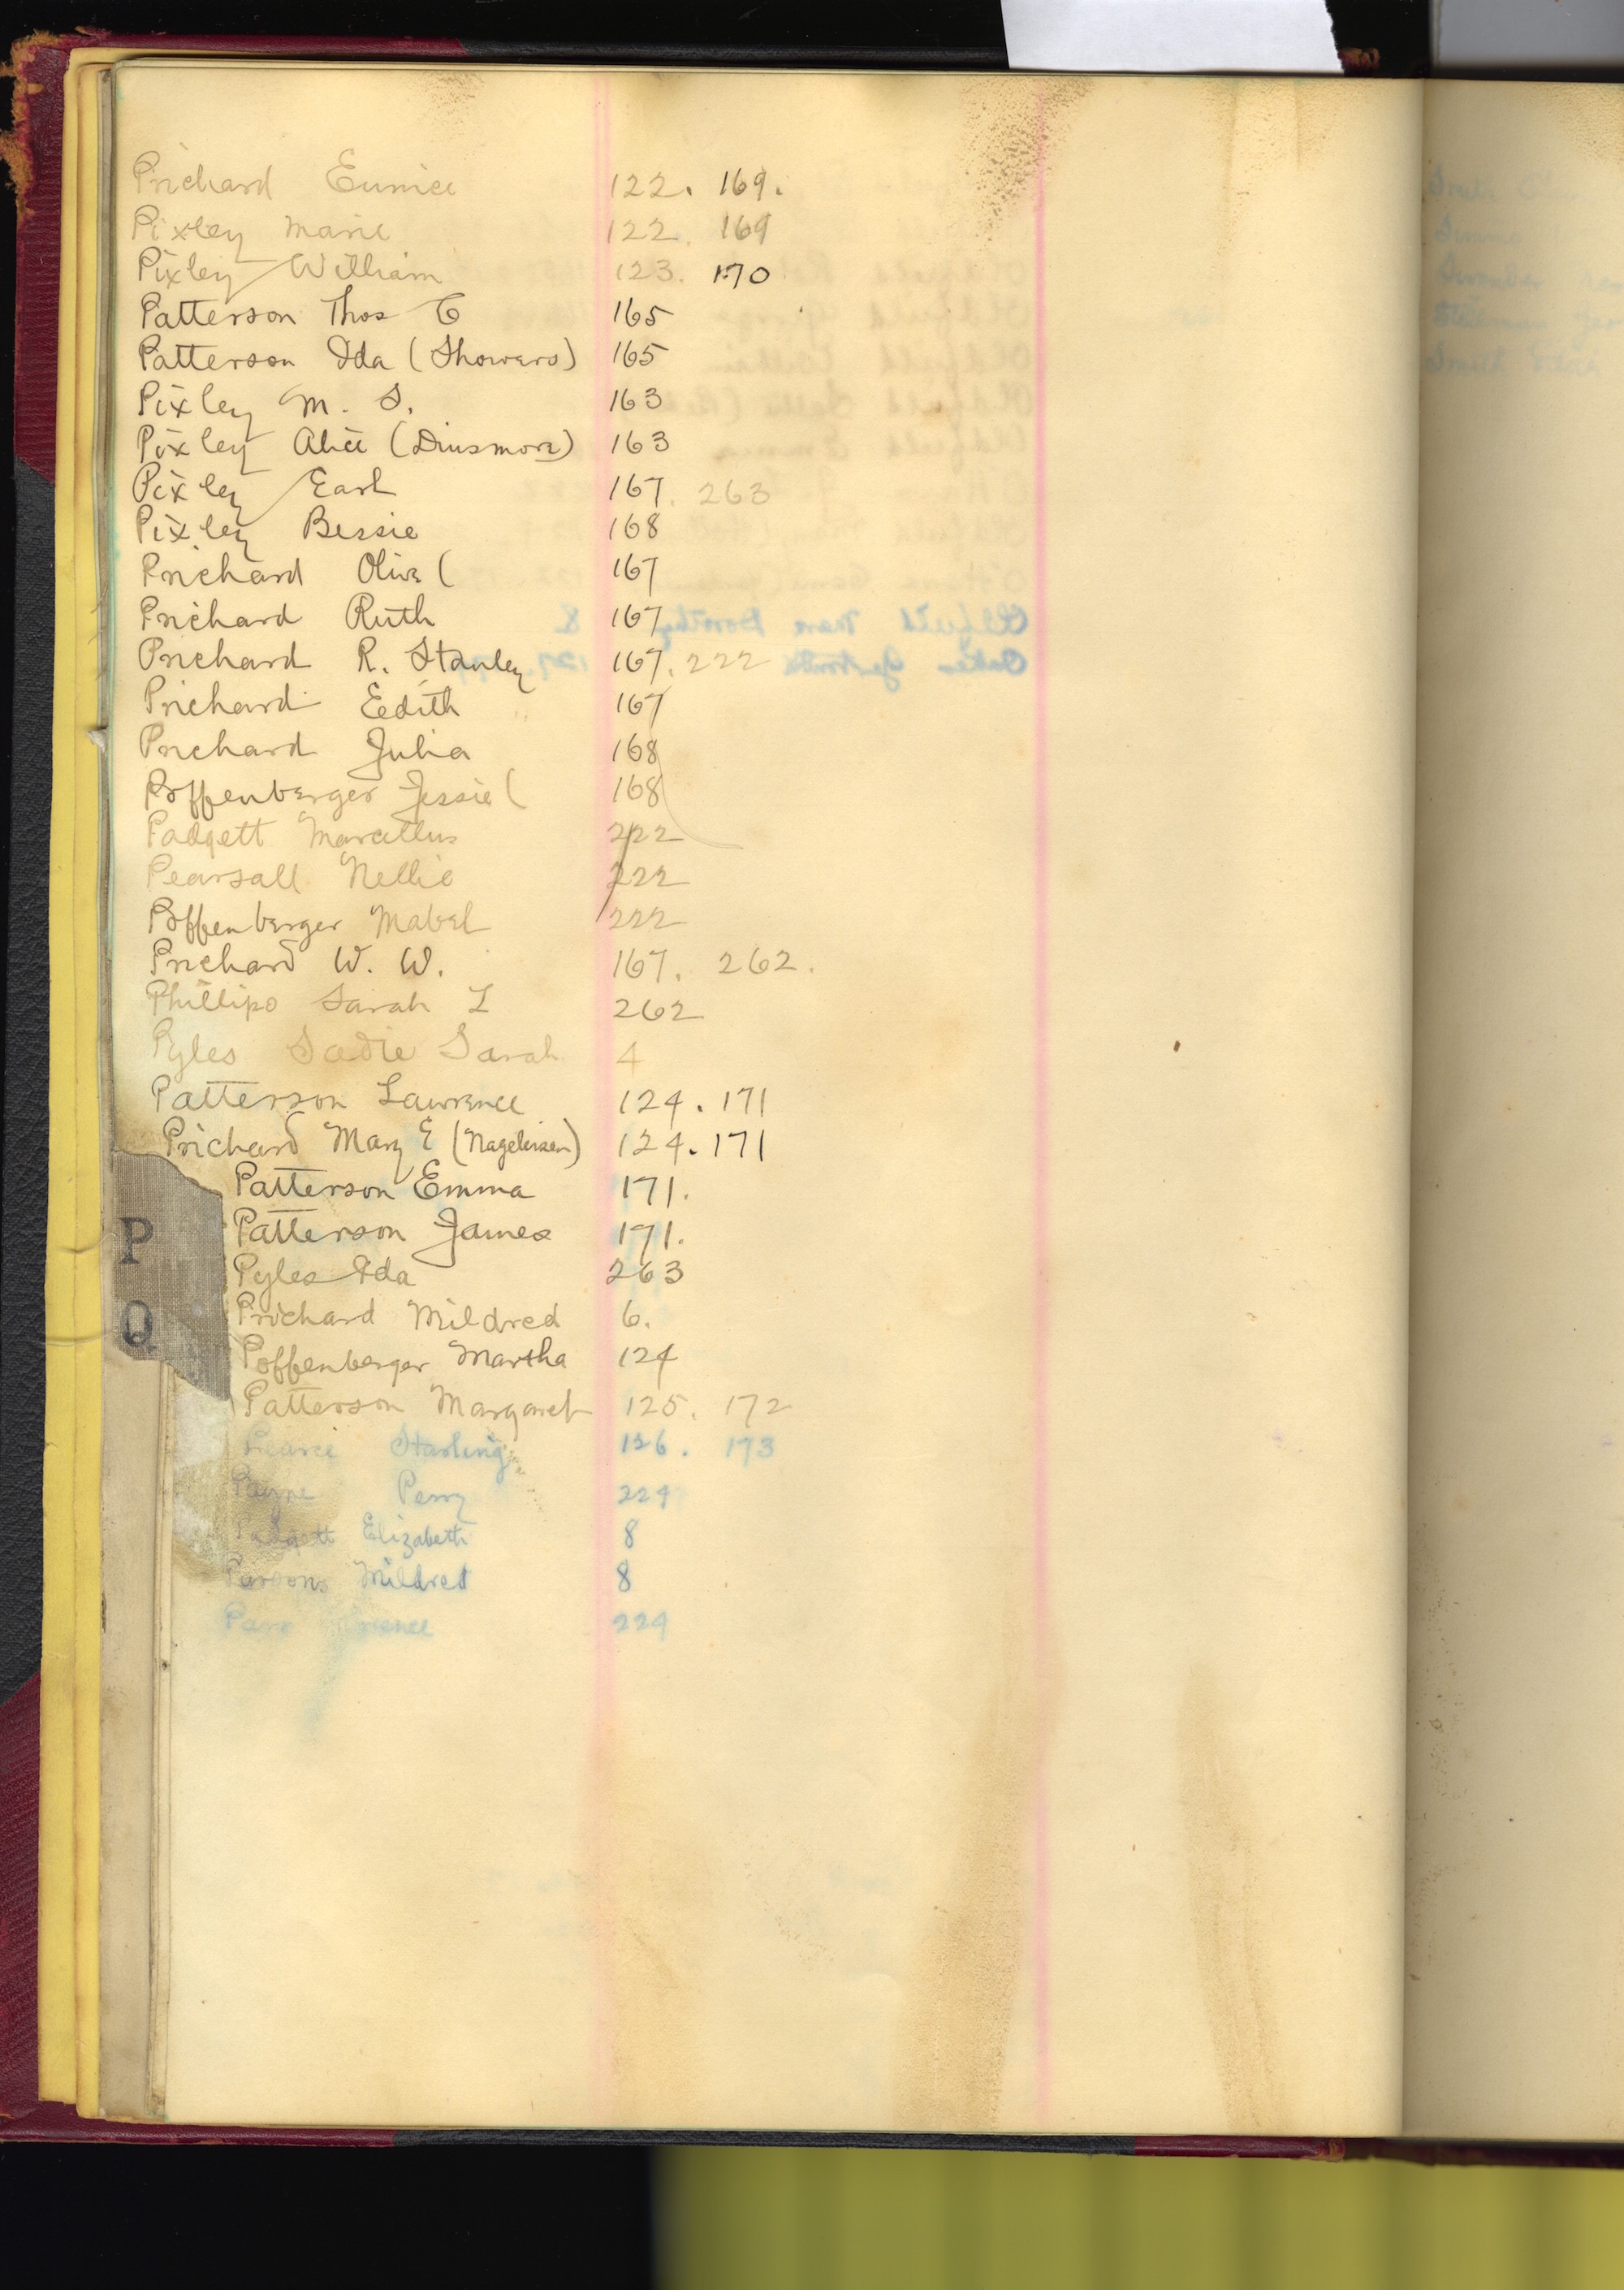 Prichard Eunice 122. 169.
Pixley Marie 122. 169
Pixley William 123. 170
Patterson Thos C 165
Patterson Ida (Showers) 165
Pixley M. S. 163
Pixley Alice (Dinsmore) 163
Pixley Earl 167. 263
Pixley Bessie 168
Prichard Olive ( 167
Prichard Ruth 167
Prichard R. Stanley 167. 222
Prichard Edith 167
Prichard Julia 168
Poffenberger Jessie ( 168
Padgett Marcellus 222
Pearsall Nellie 222
Poffenberger Mabel 222
Prichard W. W. 167. 262.
Phillipo Sarah L 262
Pyles Sadie Sarah 4
Patterson Lawrence 124. 171
Prichard Mary E (Nageleisen) 124. 171
Patterson Emma 171.
P
Patterson James 171.
Pyles Ida 263
Q
Prichard Mildred 6.
Poffenberger Martha 124
Patterson Margaret 125. 172
Pearce Starling 126. 173
Payne Perry 224
Padgett Elizabeth 8
Parsons Mildred 8
224